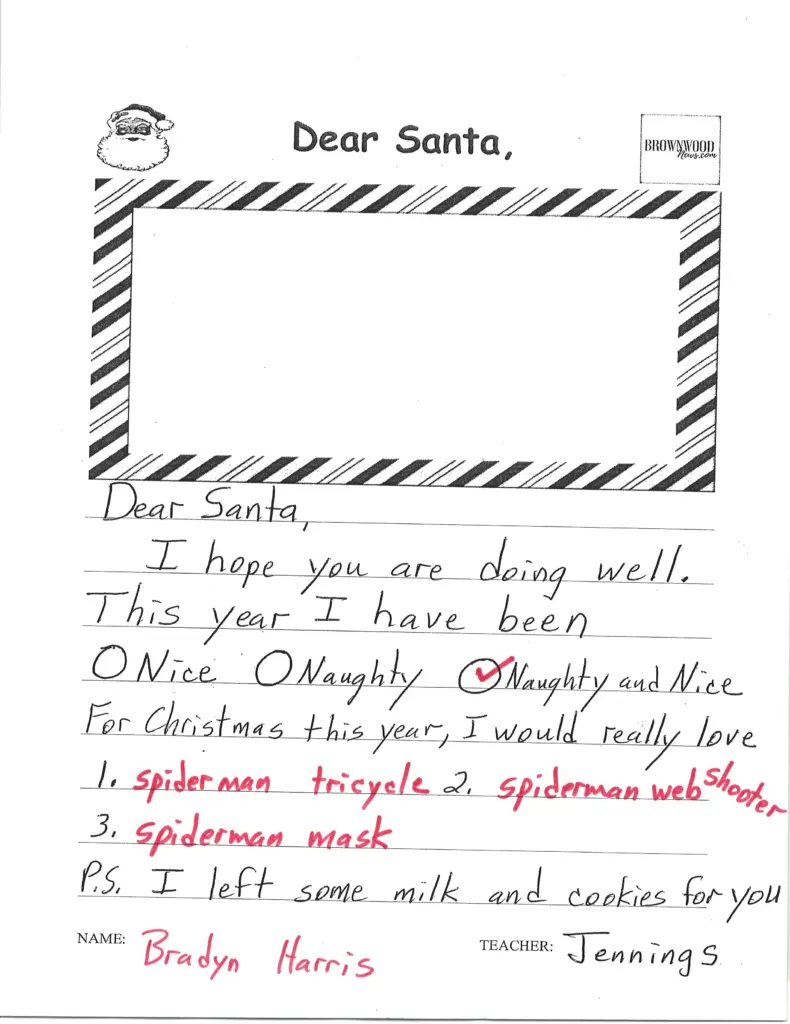 Dear Santa,
BROWNWOOD
News.com
Dear Santa,
I hope you are doing well.
This year I have been
Nice Naughty Naughty and Nice
For Christmas this year, I would really love
1. spiderman tricycle 2. spiderman web shooter
3. spiderman mask
P.S. I left some milk and cookies for you
NAME: Bradyn Harris TEACHER: Jennings